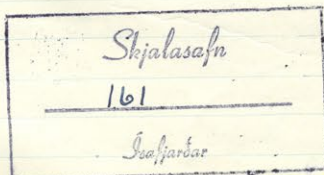 Skjalasafn
161
Ísafjarðar